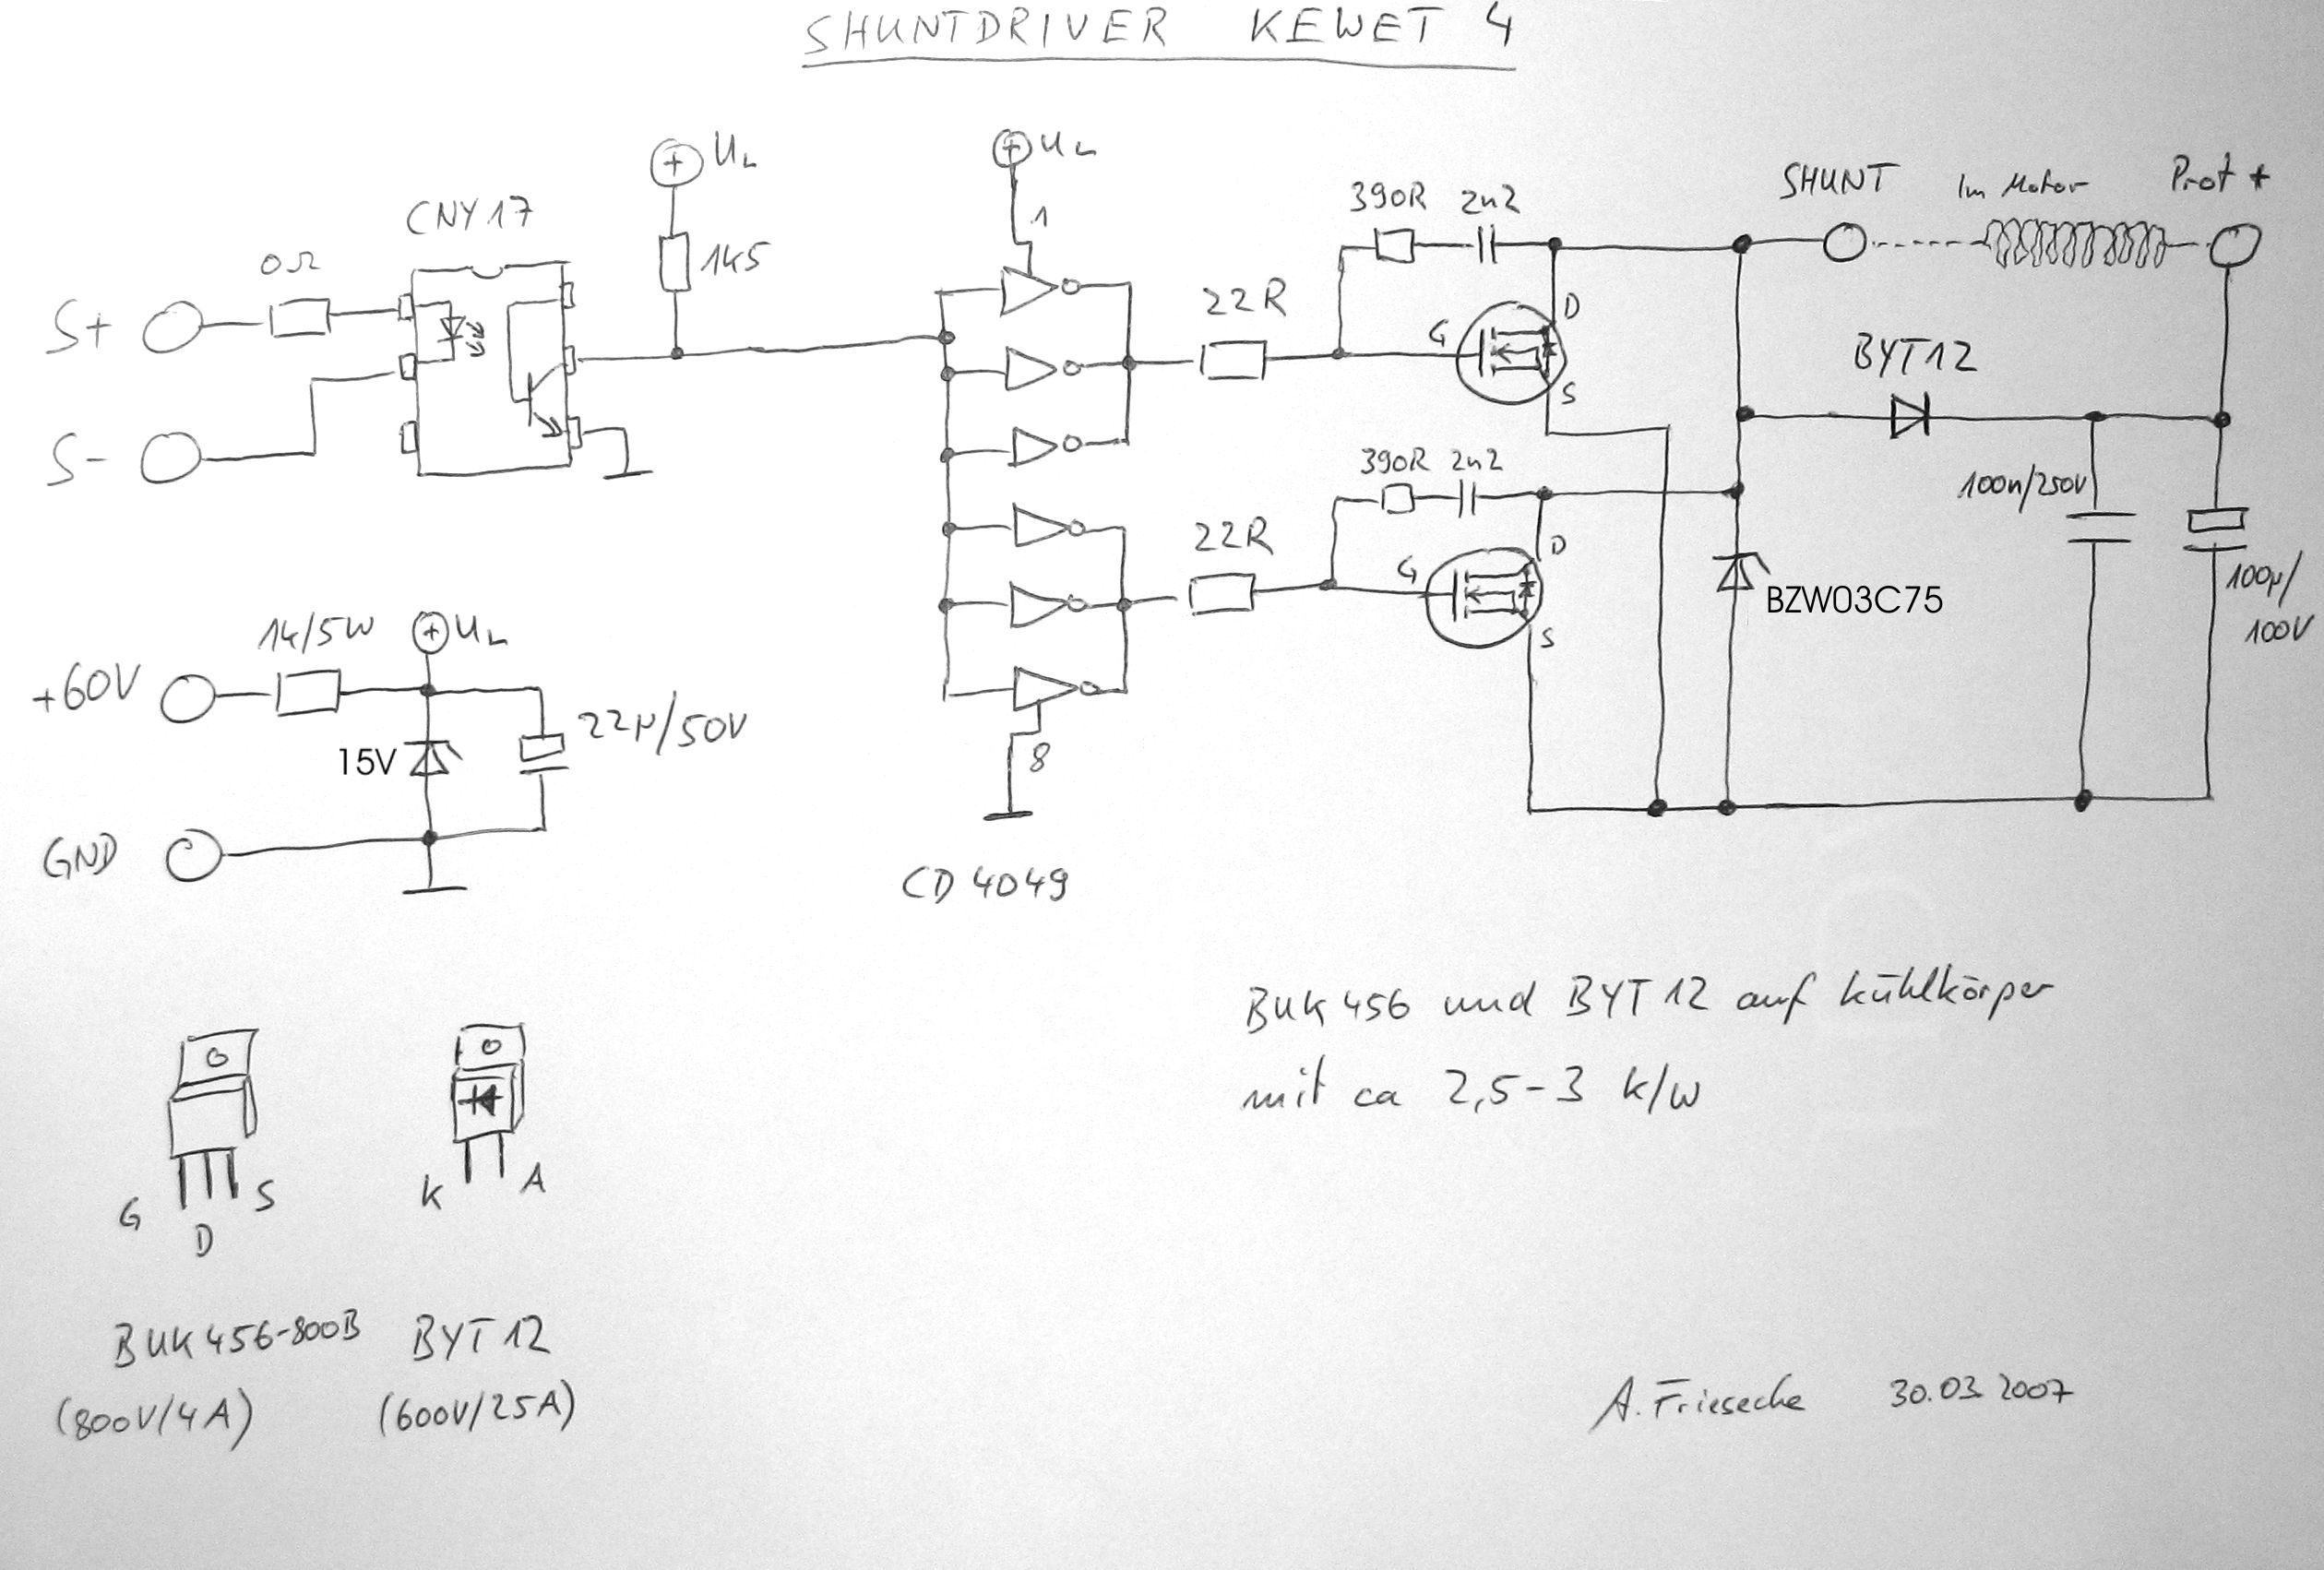 SHUNTDRIVER KEWET 4
S+
0Ω
CNY17
S-
⊕ U L
1k5
⊕ U L
1
8
CD 4049
22R
390R 2n2
G
D
S
22R
390R 2n2
G
D
S
SHUNT
Im Motor
Prot +
BYT12
BZW03C75
100n/250V
100µ/
100V
+60V
1k/5W
⊕ U L
15V
22µ/50V
GND
G
D
S
K
A
BUK456-800B
(800V/4A)
BYT12
(600V/25A)
BUK456 und BYT12 auf Kühlkörper
mit ca 2,5-3 K/W
A. Friesecke 30.03 2007